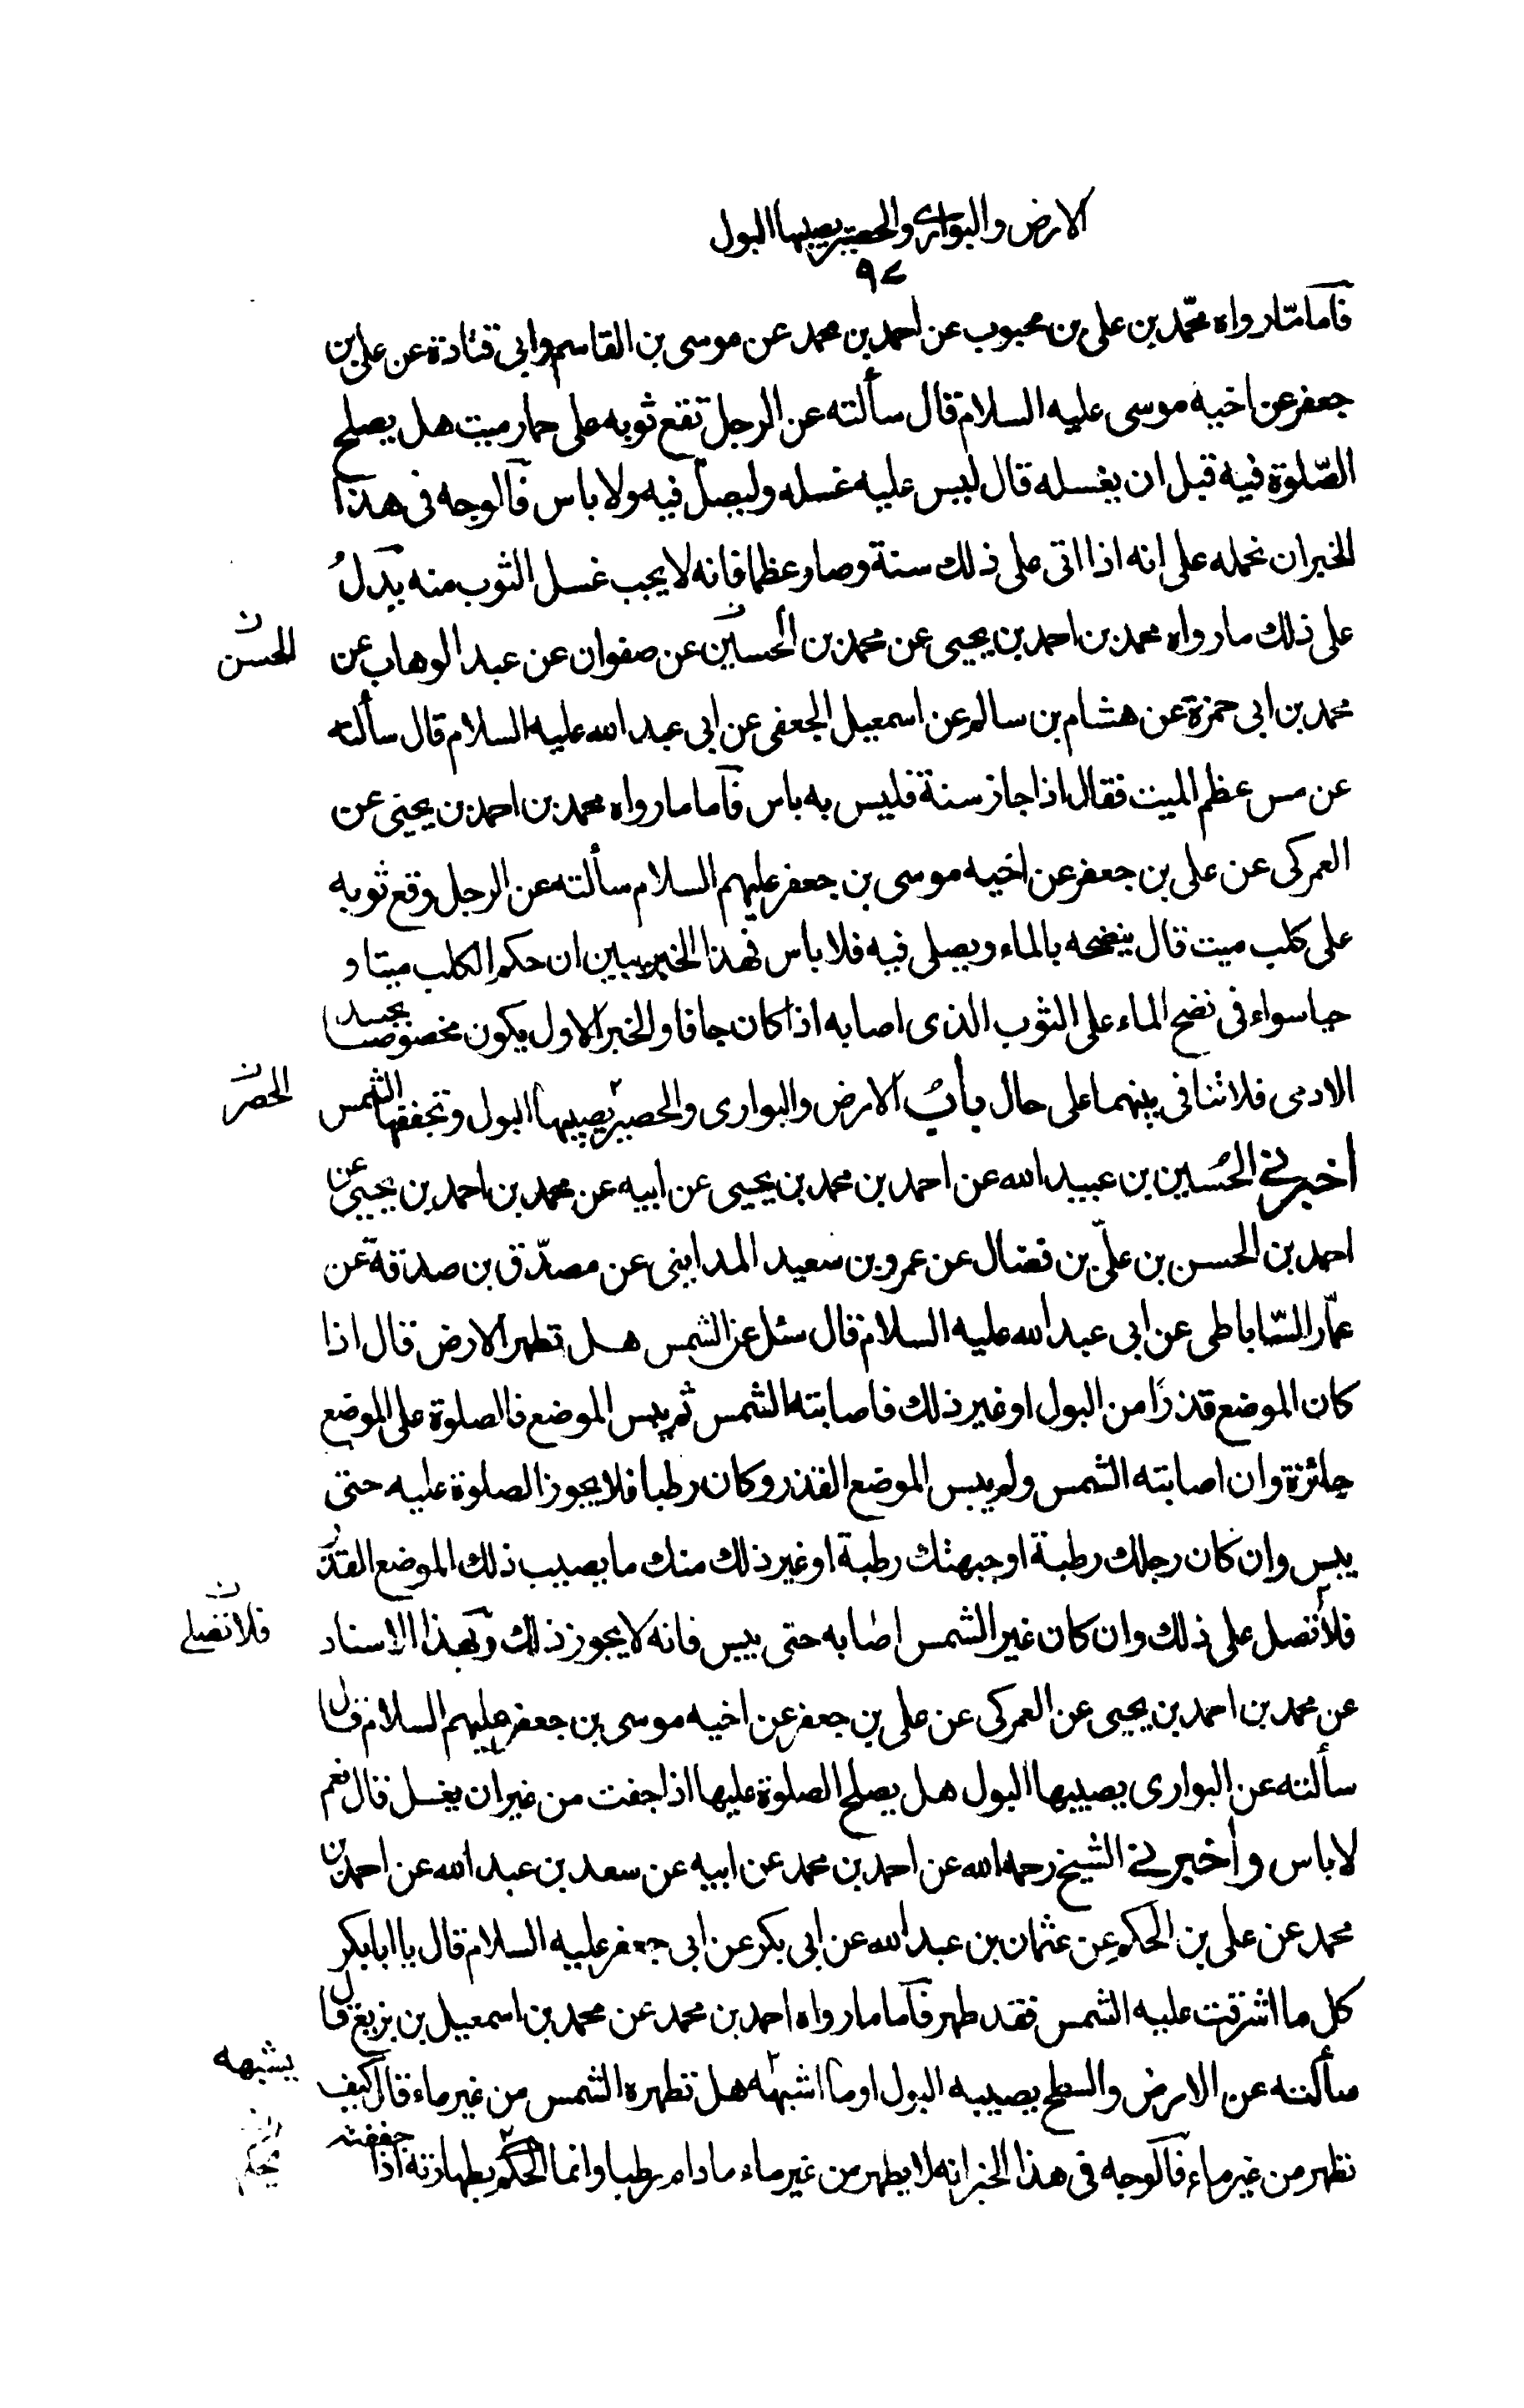 الارض والبوارى والحصير يصيبها البول
٩٧
فاما ما رواه محمد بن على بن محبوب عن احمد بن محمد عن موسى بن القاسم وابى قتادة عن على بن
جعفر عن اخيه موسى عليه السلام قال سألته عن الرجل تقع ثوبه على حمار ميت هل يصلح
الصّلوة فيه قبل ان يغسله قال ليس عليه غسله وليصلّ فيه ولا باس فالوجه فى هذا
الخبر ان نحمله على انه اذا اتى على ذلك سنة وصار عظما فانه لا يجب غسل الثوب منه يدلُ
على ذلك ما رواه محمد بن احمد بن يحيى عن محمد بن الحسين عن صفوان عن عبد الوهاب عن
الحسن
محمد بن ابى حمزة عن هشام بن سالم عن اسمعيل الجعفى عن ابى عبد الله عليه السلام قال سألته
عن مس عظم الميت فقال اذا جاز سنة فليس به باس فاما ما رواه محمد بن احمد بن يحيى عن
العمركى عن على بن جعفر عن اخيه موسى بن جعفر عليهم السلام سألته عن الرجل وقع ثوبه
على كلب ميت قال ينضحه بالماء ويصلى فيه فلا باس فهذا الخبر يبين ان حكم الكلب ميتا و
حيا سواء فى نضح الماء على الثوب الذى اصابه اذا كان جافا والخبر الاول يكون مخصوصا بجسد
الادمى فلا تنافى بينهما على حال بابُ الارض والبوارى والحصير يصيبها البول وتجففها الشمس
الحصر
اخبرنى الحُسين بن عبيد الله عن احمد بن محمد بن يحيى عن ابيه عن محمد بن احمد بن يحيى عن
احمد بن الحسن بن علىّ بن فضال عن عمرو بن سعيد المداينى عن مصدّق بن صدقة عن
عمّار السّاباطى عن ابى عبد الله عليه السلام قال سئل عن الشمس هل تطهر الارض قال اذا
كان الموضع قذرًا من البول او غير ذلك فاصابته الشمس ثم يبس الموضع فالصلوة على الموضع
جائزة وان اصابته الشمس ولم ييبس الموضع القذر وكان رطبا فلا يجوز الصلوة عليه حتى
ييبس وان كان رجلك رطبة او جبهتك رطبة او غير ذلك منك ما يصيب ذلك الموضع القذر
فلا تصل على ذلك وان كان غير الشمس اصابه حتى ييبس فانه لا يجوز ذلك وبهذا الاسناد
فلا تصلى
عن محمد بن احمد بن يحيى عن العمركى عن على بن جعفر عن اخيه موسى بن جعفر عليهم السلام قال
سألته عن البوارى يصيبها البول هل يصلح الصلوة عليها اذا جفت من غير ان يغسل قال نعم
لا باس واخبرنى الشيخ رحمه الله عن احمد بن محمد عن ابيه عن سعد بن عبد الله عن احمد بن
محمد عن على بن الحكم عن عثمان بن عبد الله عن ابى بكر عن ابى جعفر عليه السلام قال يا ابا بكر
كل ما اشرقت عليه الشمس فقد طهر فاما ما رواه احمد بن محمد عن محمد بن اسمعيل بن بزيع قال
سألته عن الارض والسطح يصيبه البول او ما اشبهه هل تطهره الشمس من غير ماء قال كيف
يشبهه
تطهر من غير ماء فالوجه فى هذا الخبر انه لا يطهر من غير ماء ما دام رطبا وانما الحكم بطهارته اذا جففته